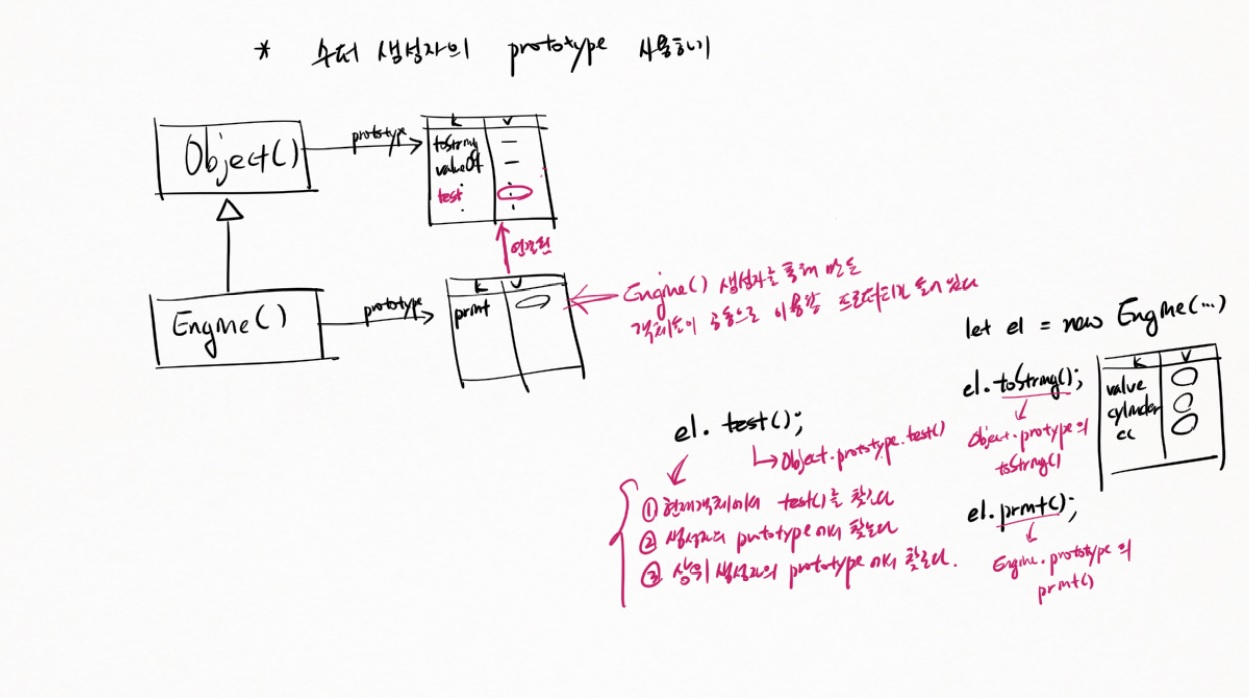 * 수퍼 생성자의 prototype 사용하기
Object()
prototype
K V
toString
valueOf
test
연결된
Engine()
prototype
K V
print
Engine() 생성자를 통해 만든
객체들이 공통으로 이용할 프로퍼티가 들어 있다
let e1 = new Engine(...)
K V
value
cylinder
cc
e1.toString();
Object.protype의
toString()
e1.print();
Engine.prototype의
print()
e1.test();
Object.prototype.test()
① 현재객체에서 test()를 찾는다
② 생성자의 prototype에서 찾는다
③ 상위 생성자의 prototype에서 찾는다.